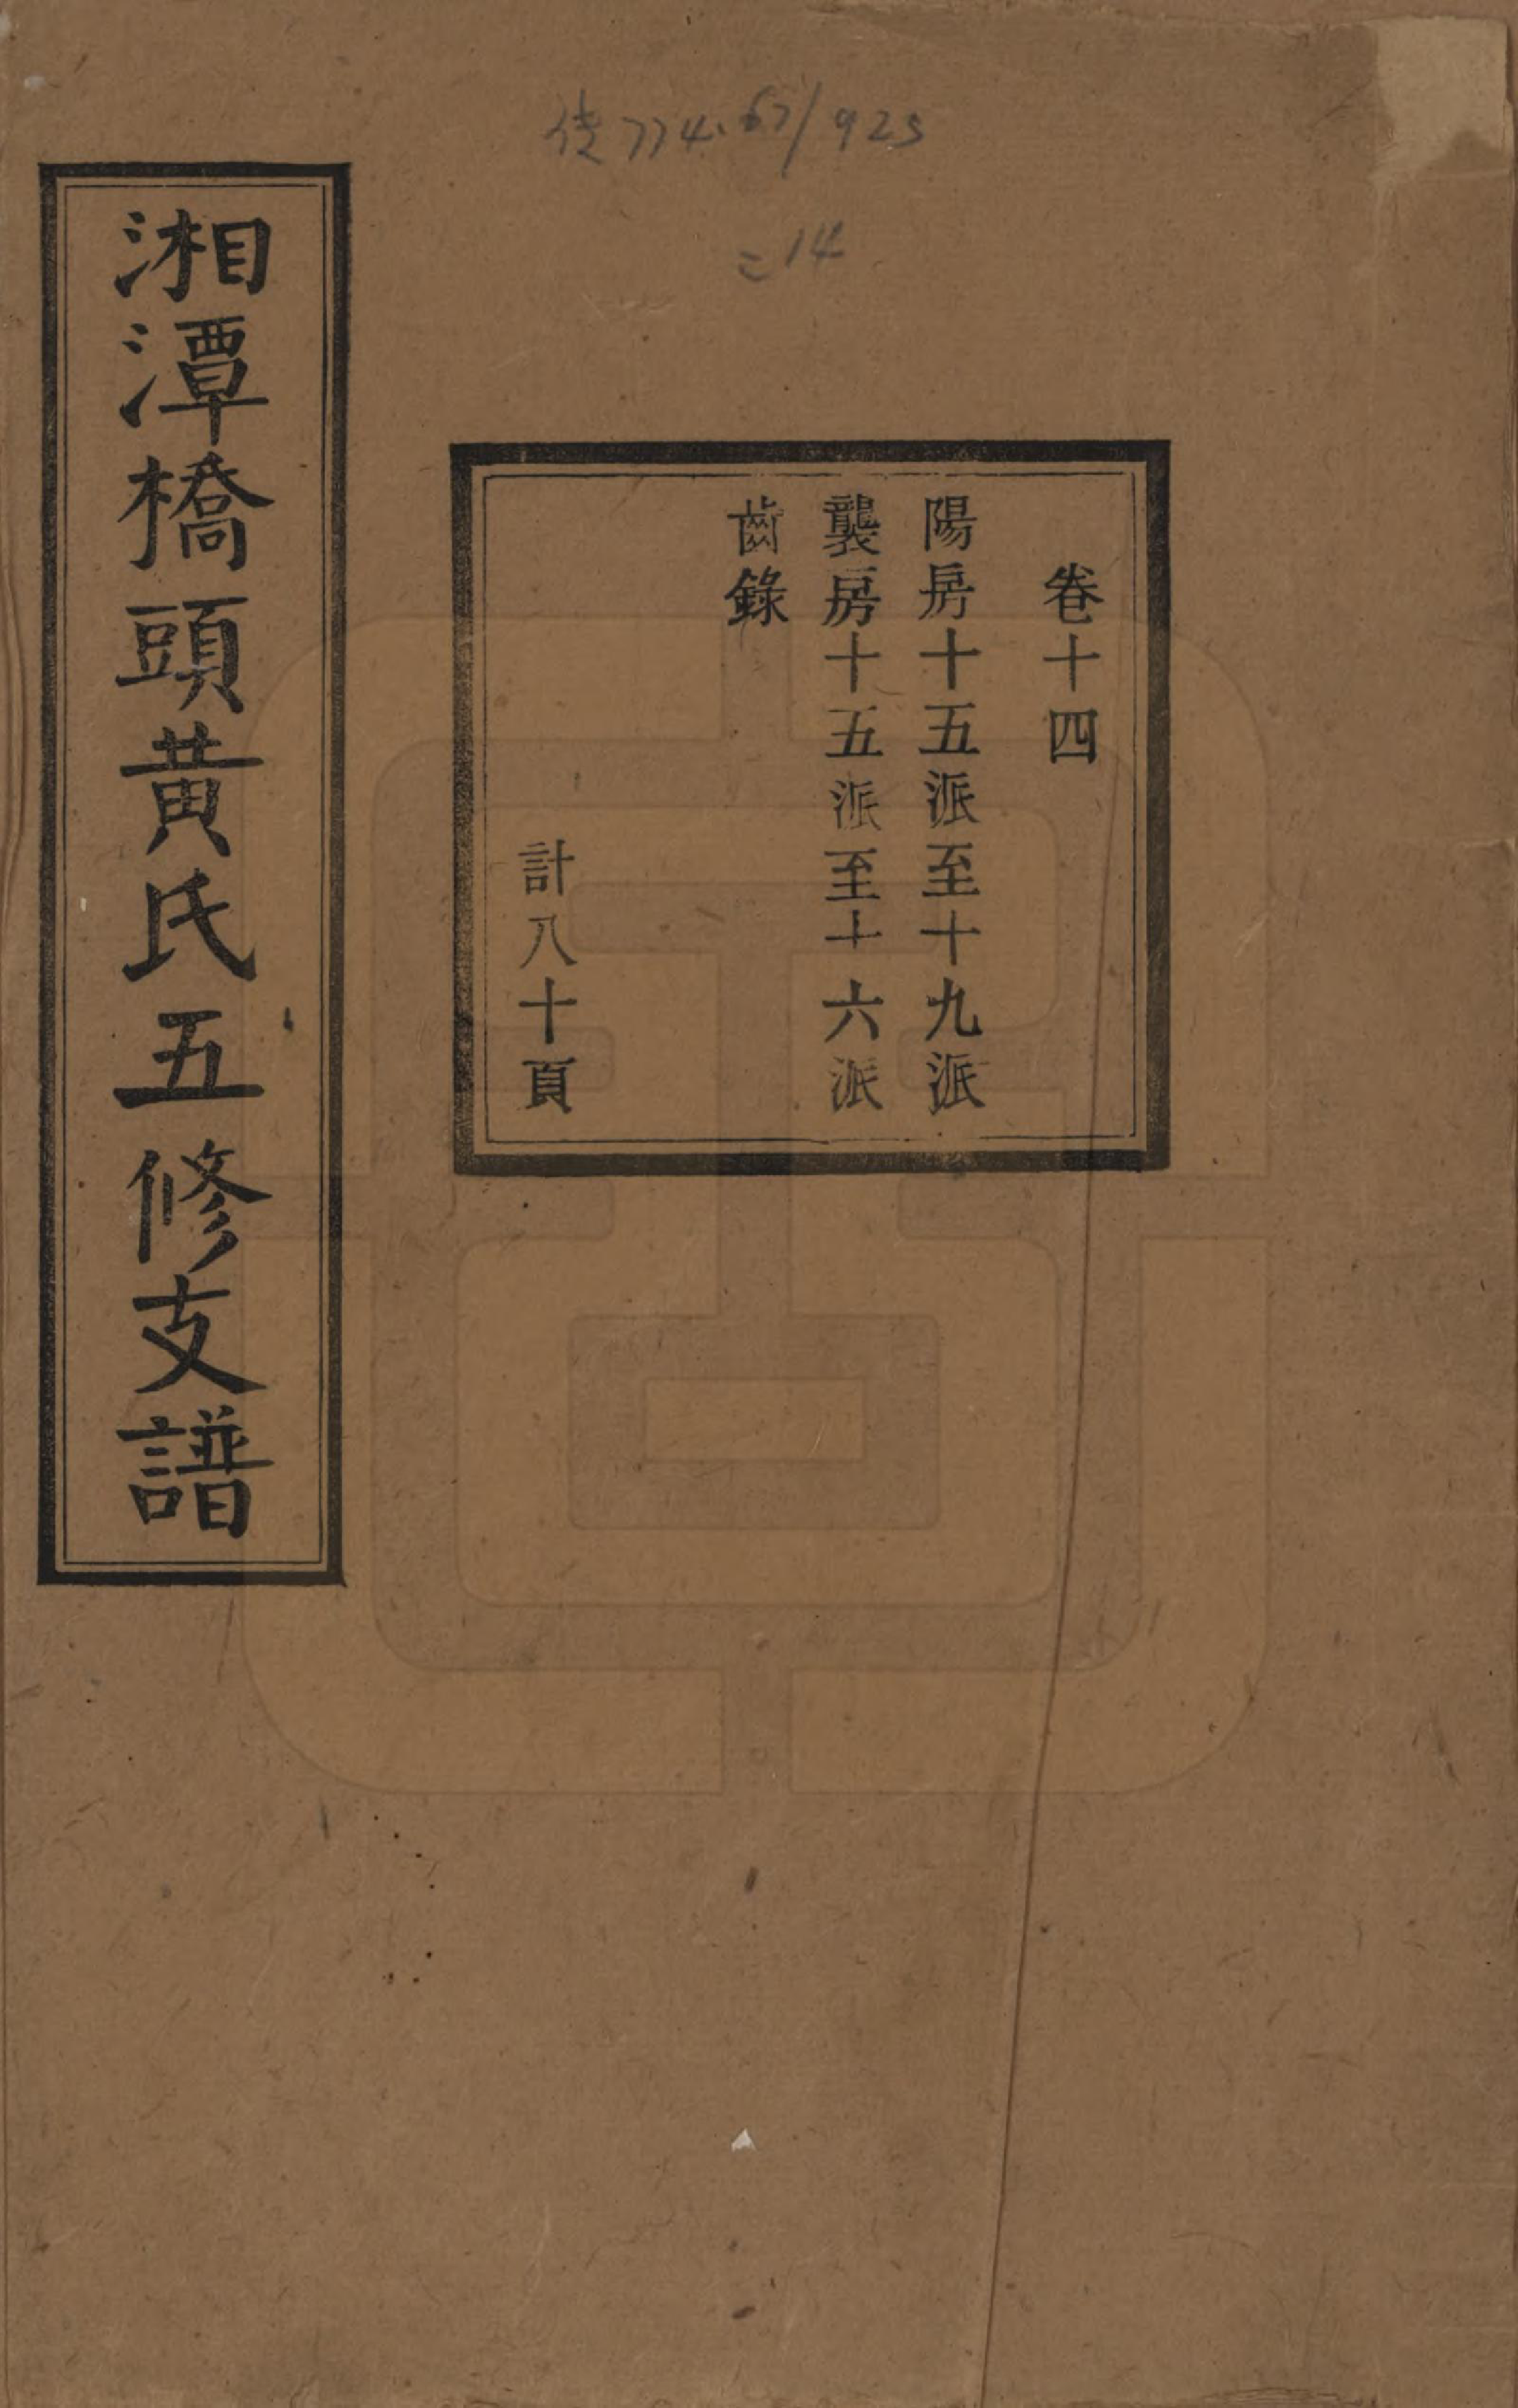 774.67/925
=14
卷十四
陽房十五派至十九派
襲房十五派至十六派
齒錄
計八十頁
湘潭橋頭黄氏五修支譜